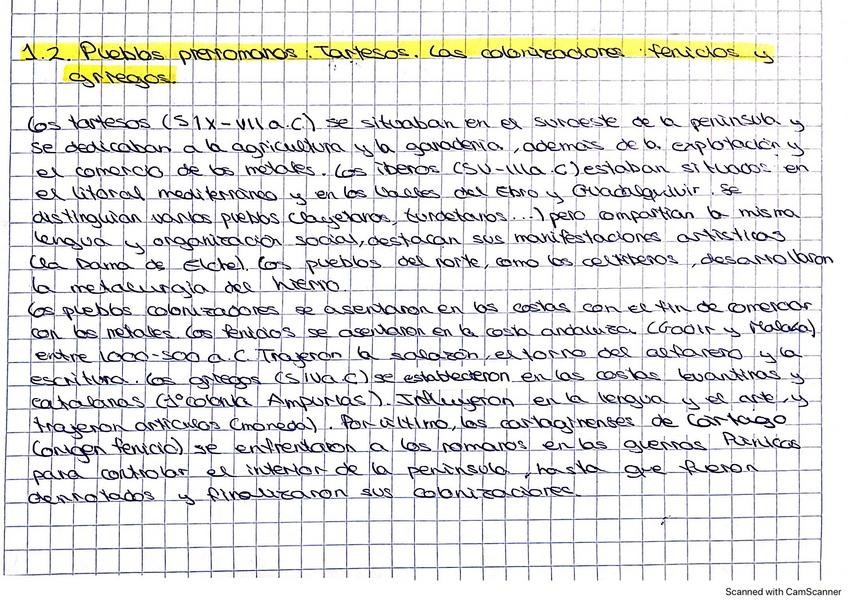 1.2. Pueblos prerromanos: Tartesos. Las colonizaciones: fenicios y
griegos.
Los tartesos (SIX-VII a.C) se situaban en el suroeste de la península y
se dedicaban a la agricultura y la ganadería, además de la explotación y
el comercio de los metales. Los íberos (SV-III a.C) estaban situados en
el litoral mediterráneo y en los valles del Ebro y Guadalquivir. Se
distinguían varios pueblos (layetanos, turdetanos...) pero compartían la misma
lengua y organización social, destacan sus manifestaciones artísticas
(la Dama de Elche). Los pueblos del norte, como los celtíberos, desarrollaron
la metalurgia del hierro.
Los pueblos colonizadores se asentaron en las costas con el fin de comerciar
con los metales. Los fenicios se asentaron en la costa andaluza (Gadir y Malaka)
entre 1000-500 a.C. Trajeron la salazón, el torno del alfarero y la
escritura. Los griegos (SIV a.C) se establecieron en las costas levantinas y
catalanas (1ª colonia Ampurias). Influyeron en la lengua y el arte, y
trajeron artículos (moneda). Por último, los cartagineses de Cartago
(origen fenicio) se enfrentaron a los romanos en las guerras Púnicas
para controlar el interior de la península, hasta que fueron
derrotados y finalizaron sus colonizaciones.
Scanned with CamScanner